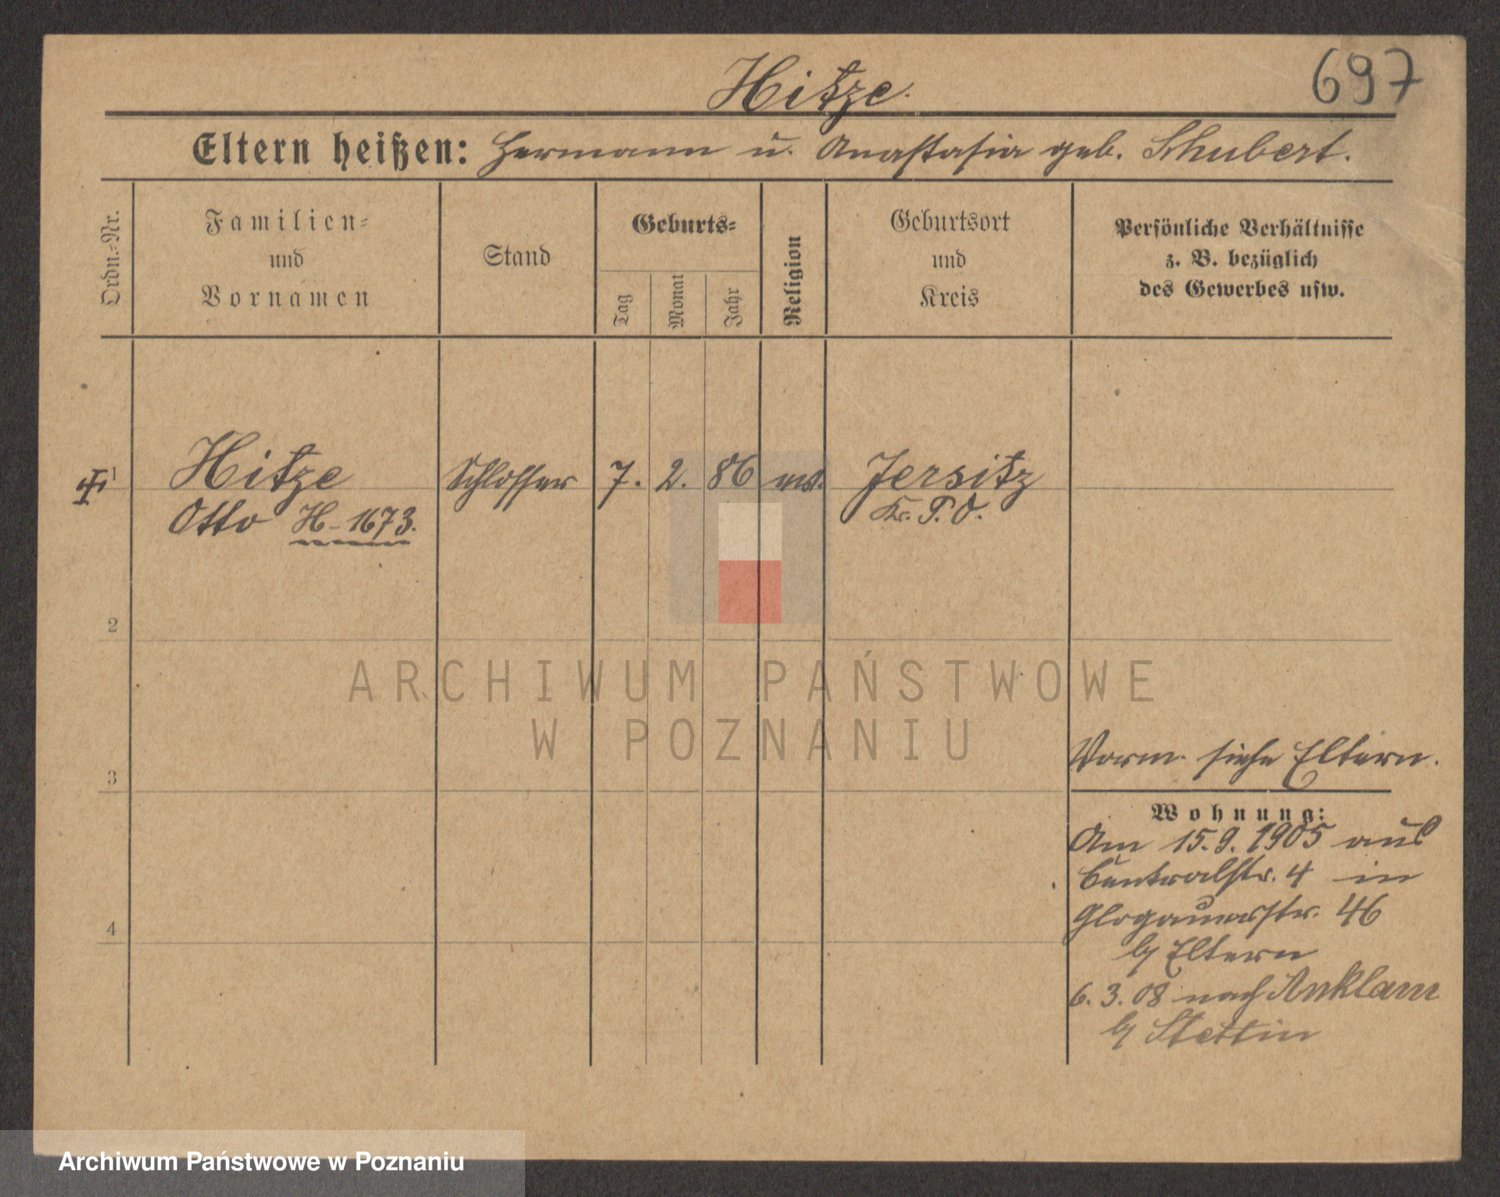 697
Hitze.
Eltern heißen: Hermann u. Anastasia geb. Schubert.
Ordn.-Nr.
Familien-
und
Vornamen
Stand
Geburts-
Tag
Monat
Jahr
Religion
Geburtsort
und
Kreis
Persönliche Verhältnisse
z. B. bezüglich
des Gewerbes usw.
1
Hitze Schlosser 7. 2. 86 Jersitz
Otto H-1673. Kr. P. O.
2
ARCHIWUM PAŃSTWOWE
W POZNANIU
Vorm. siehe Eltern.
3
Wohnung:
Am 15.9.1905 aus
Centralstr. 4 in
Glogauerstr. 46
b/ Eltern
4
6.3.08 nach Anklam
b/ Stettin
Archiwum Państwowe w Poznaniu